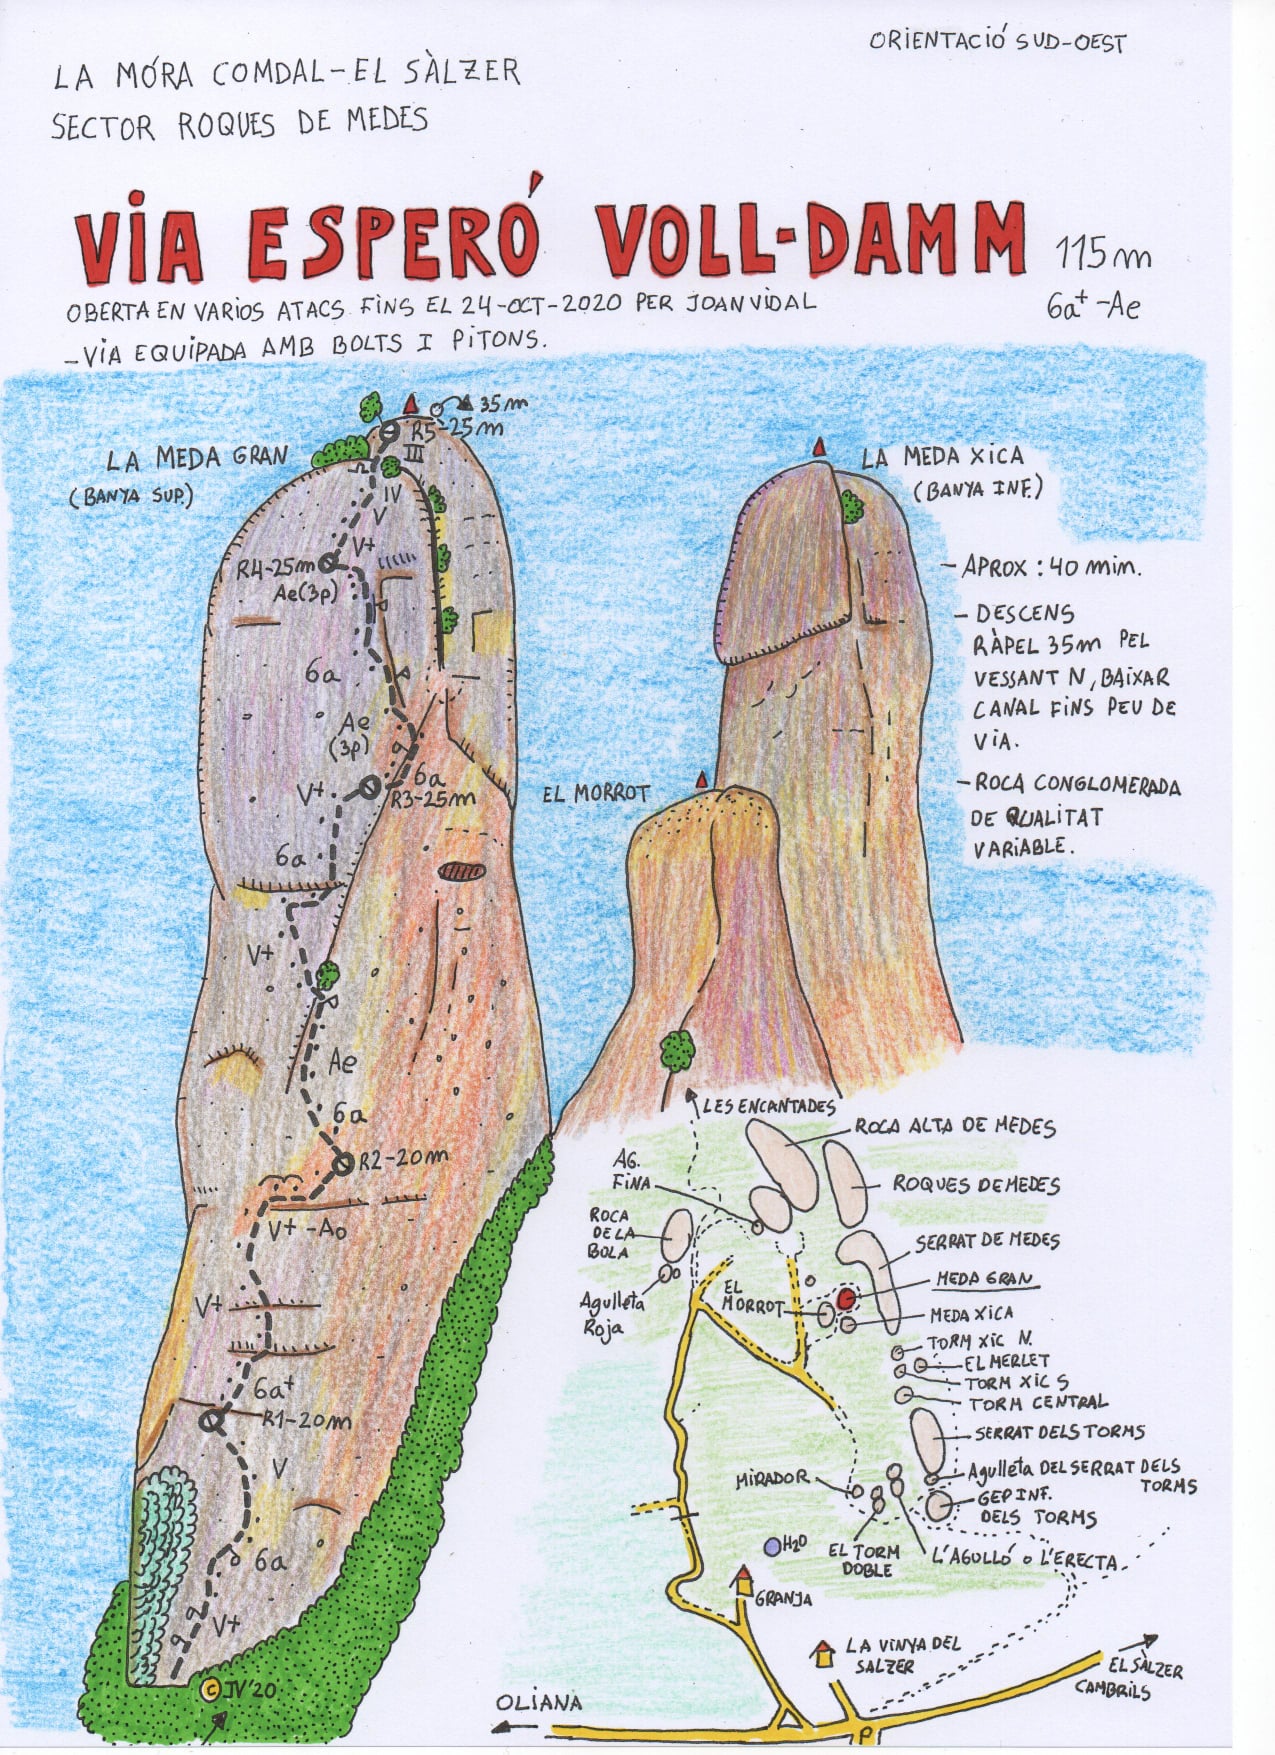 ORIENTACIÓ SUD-OEST
LA MÓRA COMDAL-EL SÀLZER
SECTOR ROQUES DE MEDES
VIA ESPERÓ VOLL-DAMM
115m
6a+-Ae
OBERTA EN VARIOS ATACS FINS EL 24-OCT-2020 PER JOAN VIDAL
-VIA EQUIPADA AMB BOLTS I PITONS.
35m
R5-25m
III
LA MEDA GRAN
(BANYA SUP.)
IV
V
V+
R4-25m
Ae(3p)
6a
Ae
(3p)
6a
V+
R3-25m
6a
V+
Ae
6a
R2-20m
V+-Ao
V+
6a+
R1-20m
V
6a
V+
C JV'20
LA MEDA XICA
(BANYA INF.)
EL MORROT
- APROX : 40 min.
- DESCENS
RÀPEL 35m PEL
VESSANT N, BAIXAR
CANAL FINS PEU DE
VIA.
- ROCA CONGLOMERADA
DE QUALITAT
VARIABLE.
LES ENCANTADES
ROCA ALTA DE MEDES
AG.
FINA
ROQUES DE MEDES
ROCA
DE LA
BOLA
SERRAT DE MEDES
Agulleta
Roja
EL
MORROT
MEDA GRAN
MEDA XICA
TORM XIC N.
EL MERLET
TORM XIC S
TORM CENTRAL
SERRAT DELS TORMS
MIRADOR
Agulleta DEL SERRAT DELS
TORMS
GEP INF.
DELS TORMS
H2O
EL TORM
DOBLE
L'AGULLÓ o L'ERECTA
GRANJA
LA VINYA DEL
SALZER
EL SÀLZER
CAMBRILS
OLIANA
P